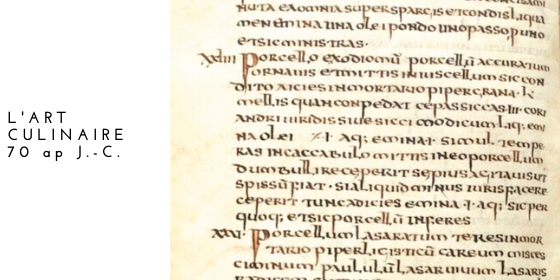 L'ART
CULINAIRE
70 ap J.-C.
nuta eaomnia superspargis etcondis liqua
men emina una olei pondo uno passo p uno
etsic ministras.
xxiiii Porcello exodiomū porcellū accuratum
fornauis etmittis iniuscellum siccon
dito aicies inmortario piper grana · L
mellis quan conpedat cepas siccas · iii · cori
andri uiridis siue sicci modicum
na olei aq; emina · i · simul tempe
ras incaccabulo mittis ineo porcellum
dum bullire ceperit sepius agita ut
spissū fiat · sialiquid minus iuris facere
ceperit tunc adicies emina · i · aq; sic per
quoq; etsic porcellū inferes
xxu · Porcellum lasaratum teres inmor
tario piper ligisticū careum misces
ciminum paululū lasar uiuum lasaris